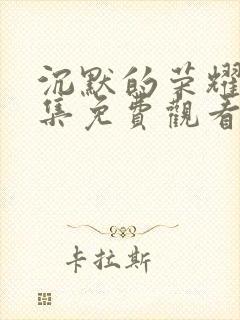 沉默的荣耀
集免費觀看
卡拉斯